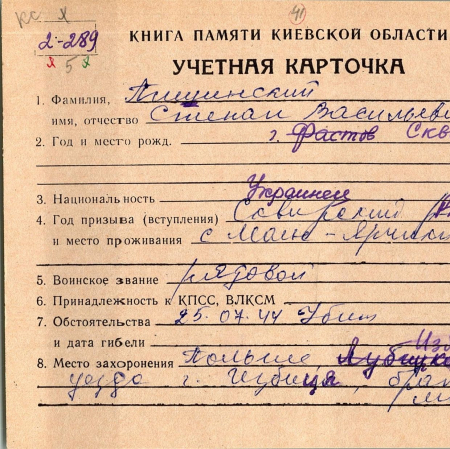 КС Х
41
2-289
х 5 х
КНИГА ПАМЯТИ КИЕВСКОЙ ОБЛАСТИ
УЧЕТНАЯ КАРТОЧКА
1. Фамилия, Пищинский
имя, отчество Степан Васильеви
2. Год и место рожд. г. Фастов Скв
3. Национальность Украинец
4. Год призыва (вступления) Сквирский
и место проживания с Мало-
5. Воинское звание рядовой
6. Принадлежность к КПСС, ВЛКСМ
7. Обстоятельства 25.07.44 Убит
и дата гибели
8. Место захоронения Польша,
уезда г.